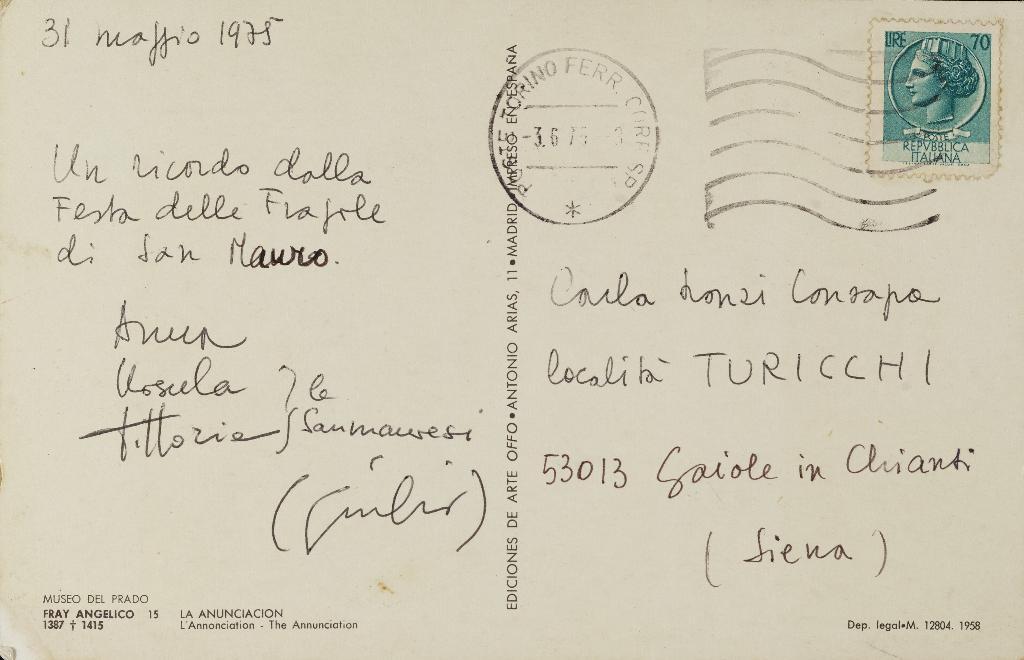 31 maggio 1975
Un ricordo dalla
Festa delle Fragole
di San Mauro.
Anna
Ursula
Vittoria
le
Sanmauresi
(Giulio)
MUSEO DEL PRADO
FRAY ANGELICO 15 LA ANUNCIACION
1387 † 1415 L'Annonciation - The Annunciation
EDICIONES DE ARTE OFFO • ANTONIO ARIAS, 11 • MADRID IMPRESO EN ESPAÑA
POSTE TORINO FERR. CORRISP.
-3.6.75
LIRE 70
POSTE
REPVBBLICA
ITALIANA
Carla Lonzi Consagra
località TURICCHI
53013 Gaiole in Chianti
(Siena)
Dep. legal•M. 12804. 1958